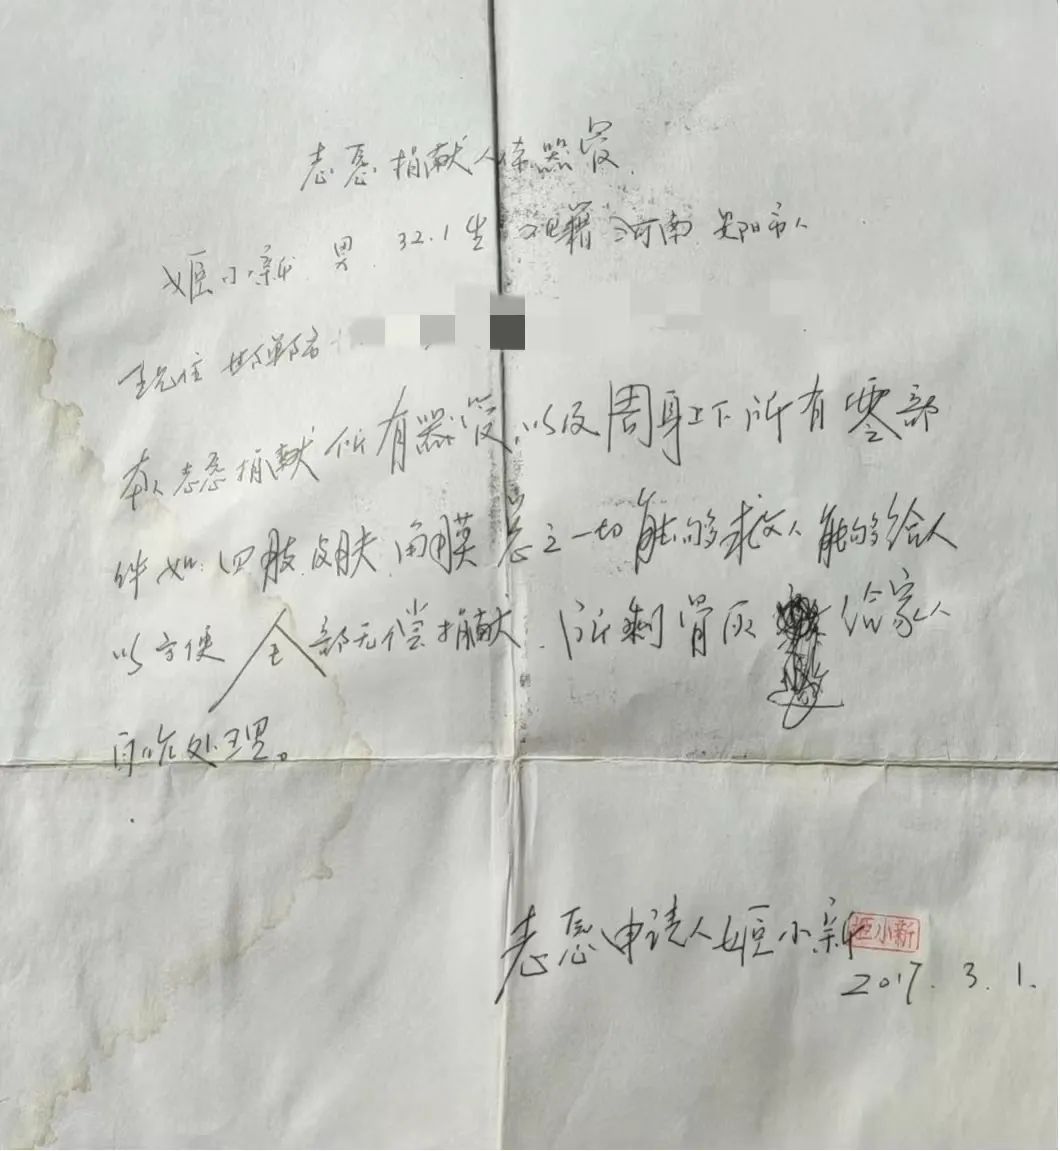 志愿捐献人体器官
姬小新 男 32.1生 祖籍河南 安阳市人
现住邯郸市
本人志愿捐献所有器官以及周身上下所有零部
件如四肢皮肤角膜总之一切能够救人能够给人
以方便 全部无偿捐献、所剩骨灰 给家人
自哈处理。
志愿申请人姬小新 姬小新
2017.3.1.